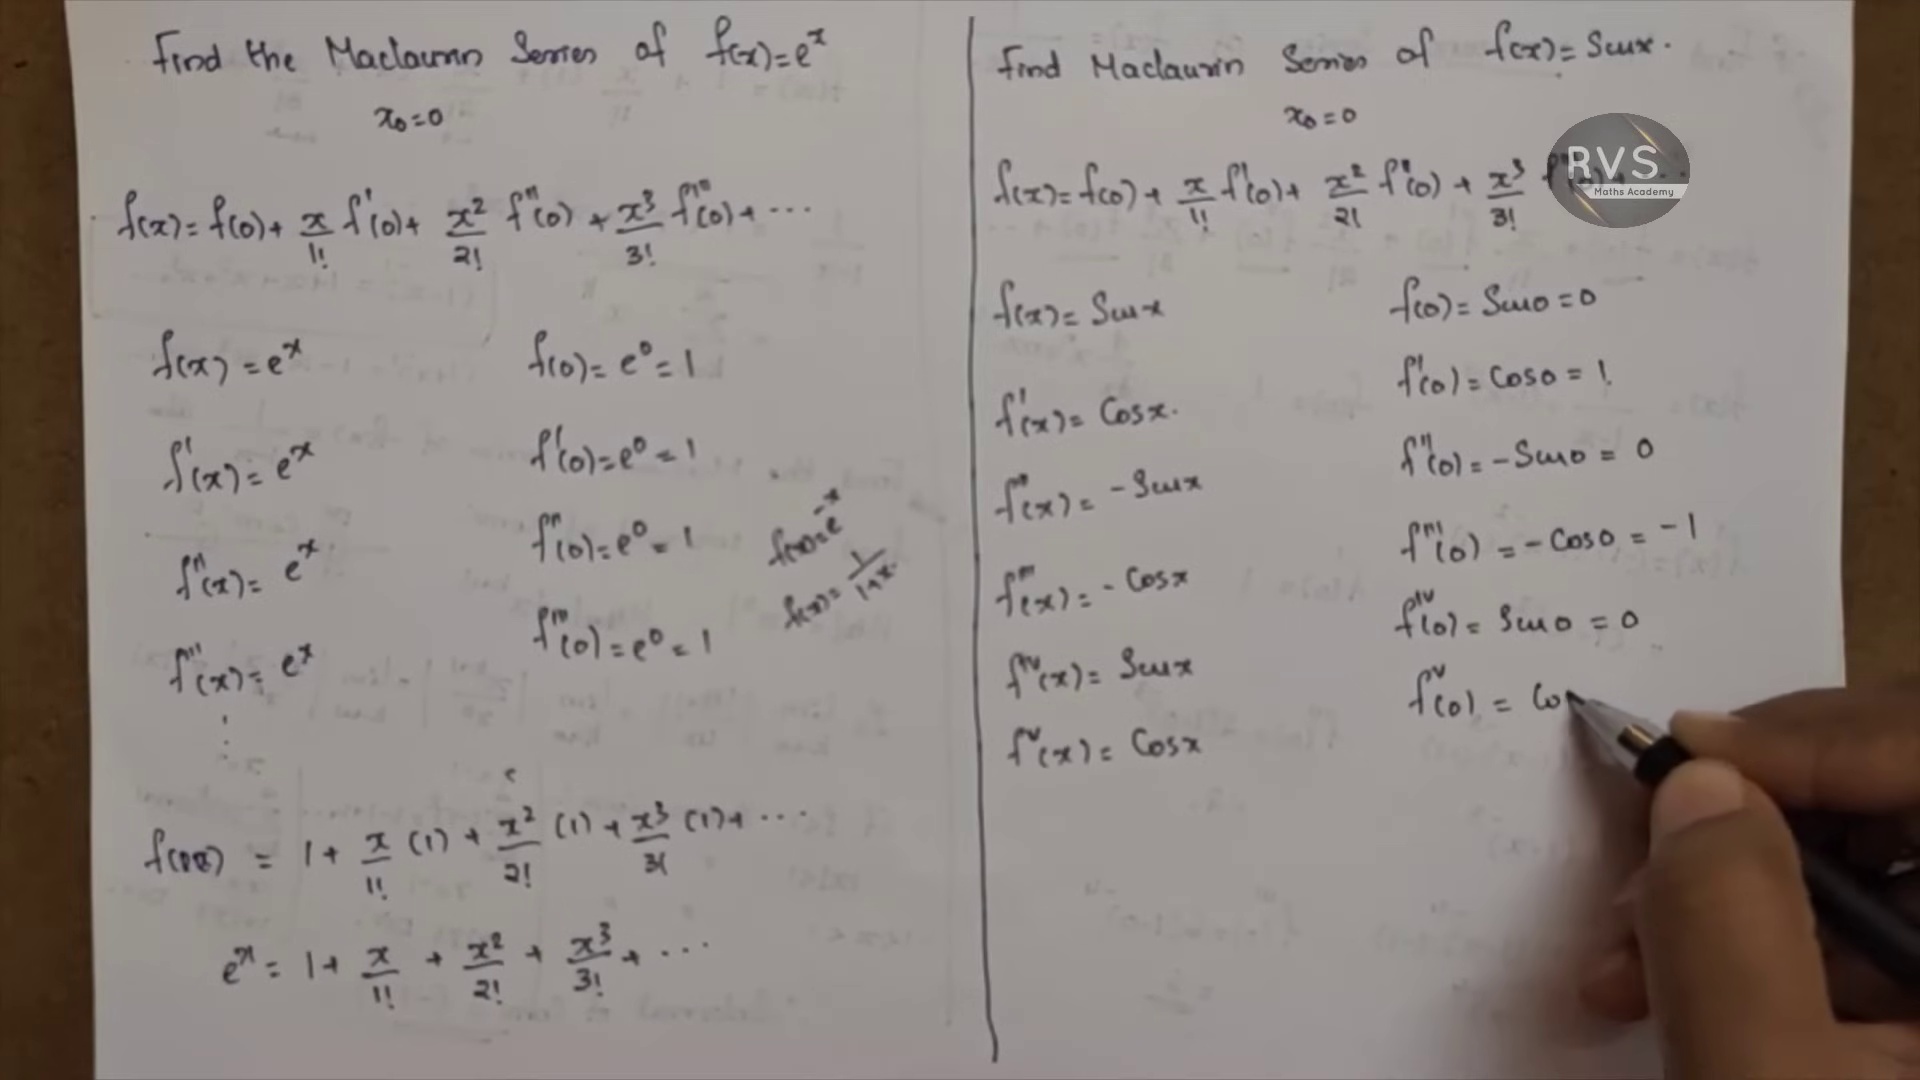 Find the Maclaurin Series of f(x)=e^x
x₀=0
f(x)= f(0)+ x/1! f'(0)+ x²/2! f''(0) + x³/3! f'''(0)+ ...
f(x) = e^x
f(0)= e⁰= 1
f'(x)= e^x
f'(0)=e⁰ = 1
f''(x)= e^x
f''(0)=e⁰ = 1
f'''(x)= e^x
f'''(0)=e⁰ = 1
f(x)=e^-x
f(x)= 1/1+x.
f(x) = 1+ x/1! (1) + x²/2! (1) + x³/3! (1)+ ...
e^x = 1+ x/1! + x²/2! + x³/3! + ...
Find Maclaurin Series of f(x)= Sinx.
x₀=0
f(x)= f(0)+ x/1! f'(0)+ x²/2! f''(0) + x³/3!
RVS
Maths Academy
f(x)= Sinx
f(0)= Sin0 = 0
f'(x)= Cosx.
f'(0) = Cos0 = 1.
f''(x) = -Sinx
f''(0) = -Sin0 = 0
f'''(x) = - Cosx
f'''(0) = - Cos0 = -1
f^iv(x) = Sinx
f^iv(0) = Sin0 = 0
f^v(x) = Cosx
f^v(0) = Co